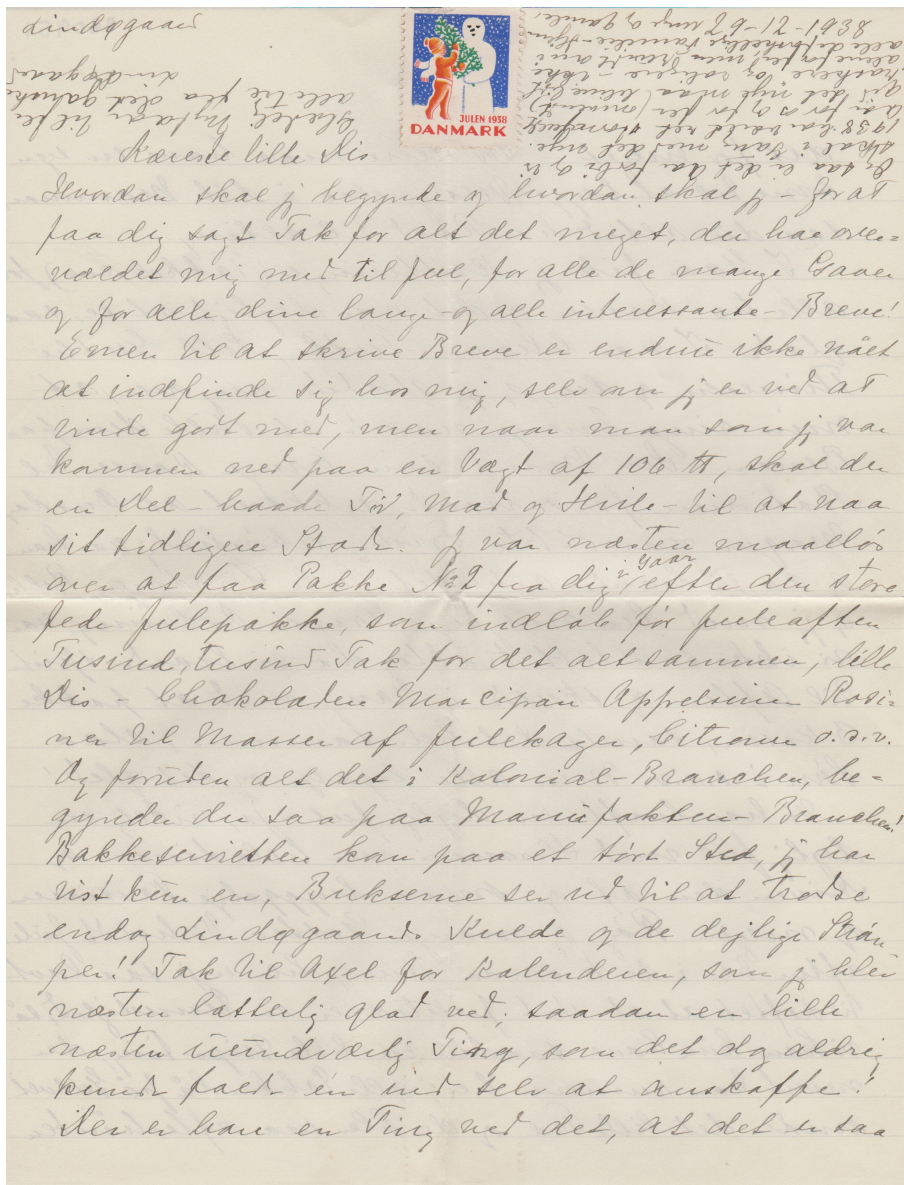 Lindøgaard
JULEN 1938
DANMARK
Glædeligt Nytaar til jer
alle tre fra det gamle
Lindøgaard
Kæreste lille Dis
Hvordan skal jeg begynde og hvordan skal jeg – for at
faa dig sagt Tak for alt det meget, du har over=
vældet mig med til Jul, for alle de mange Gaver
og for alle dine lange – og alle interessante – Breve!
Evnen til at skrive Breve er endnu ikke nået
at indfinde sig hos mig, selv om jeg er ved at
vinde godt med, men naar man som jeg var
kommen ned paa en Vægt af 106 ℔, skal der
en Del – baade Tid, Mad og Hvile – til at naa
sit tidligere Stade. Jeg var næsten maalløs
over at faa Pakke No 2 fra dig i Gaar efter den store
fede Julepakke, som indløb før Juleaften
Tusind, tusind Tak for det altsammen, lille
Dis – Chokoladen Marcipan Appelsiner Rosi=
ner til Masser af Julekager, Citroner o.s.v.
Og foruden alt det i Kolonial-Branchen, be=
gynder du saa paa Manufaktur-Branchen!
Bakkeservietten kom paa et tørt Sted, jeg har
vist kun en, Bukserne ser ud til at trodse
endog Lindøgaards Kulde og de dejlige Strøm
per! Tak til Axel for Kalenderen, som jeg blev
næsten latterlig glad ved; saadan en lille
næsten uundværlig Ting, som det dog aldrig
kunde falde én ind selv at anskaffe!
Der er bare en Ting ved det, at det er saa